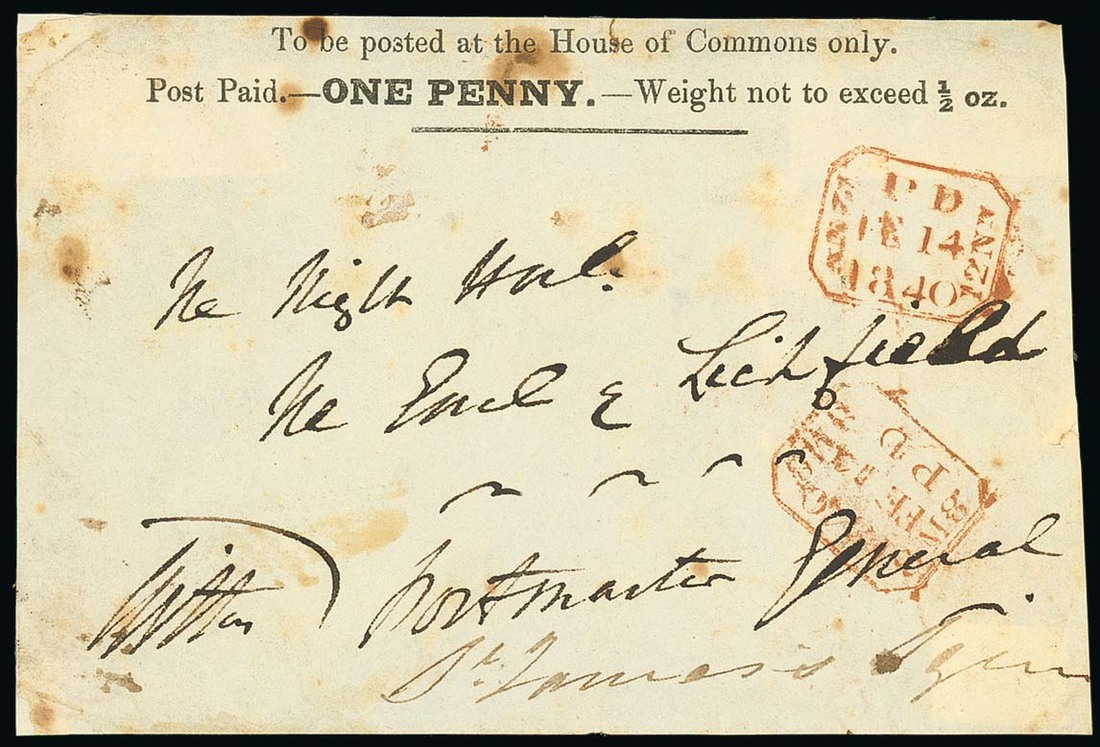 To be posted at the House of Commons only.
Post Paid.—ONE PENNY.—Weight not to exceed ½ oz.
PD
FE 14
1840
12N1
12N1
The Right Honl.
The Earl of Lichfield
PD
Postmaster General
St. James's Square